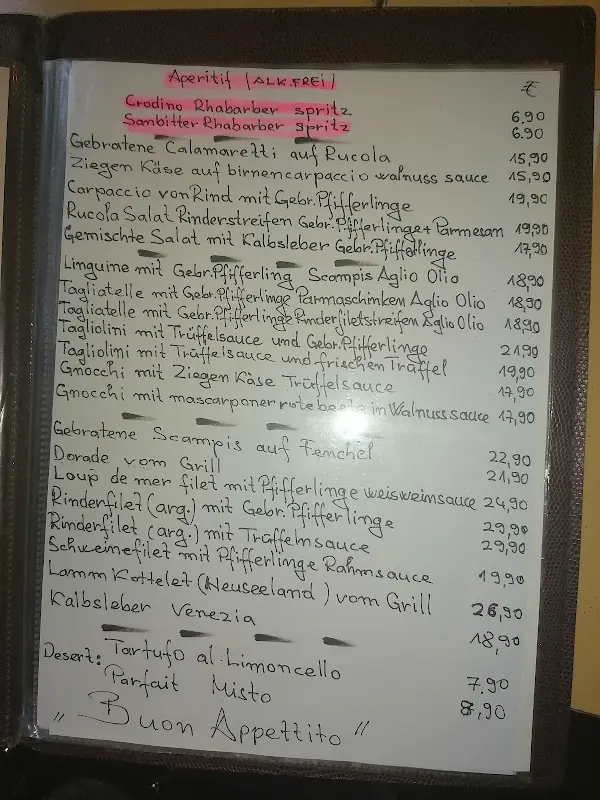 Aperitif (ALK.FREI) €
Crodino Rhabarber spritz 6.90
Sanbitter Rhabarber spritz 6.90
Gebratene Calamaretti auf Rucola 15,90
Ziegen Käse auf birnencarpaccio walnuss sauce 15,90
Carpaccio von Rind mit Gebr.Pfifferlinge 19,90
Rucola Salat Rinderstreifen Gebr.Pfifferlinge+Parmesan 19,90
Gemischte Salat mit Kalbsleber Gebr.Pfifferlinge 17,90
Linguine mit Gebr.Pfifferling Scampis Aglio Olio 18,90
Tagliatelle mit Gebr.Pfifferlinge Parmaschinken Aglio Olio 18,90
Tagliatelle mit Gebr.Pfifferlinge Rinderfiletstreifen Aglio Olio 18,90
Tagliolini mit Trüffelsauce und Gebr.Pfifferlinge 21,90
Tagliolini mit Trüffelsauce und frischen Trüffel 19,90
Gnocchi mit Ziegen Käse Trüffelsauce 17,90
Gnocchi mit mascarponer rote beete in Walnuss sauce 17,90
Gebratene Scampis auf Fenchel 22,90
Dorade vom Grill 21,90
Loup de mer filet mit Pfifferlinge weisweinsauce 24,90
Rinderfilet (arg.) mit Gebr.Pfifferlinge 29,90
Rinderfilet (arg.) mit Trüffelnsauce 29,90
Schweinefilet mit Pfifferlinge Rahmsauce 19,90
Lamm Kottelet (Neuseeland) vom Grill 26,90
Kalbsleber Venezia 18,90
Desert: Tartufo al Limoncello 7.90
Parfait Misto 8,90
"Buon Appettito"